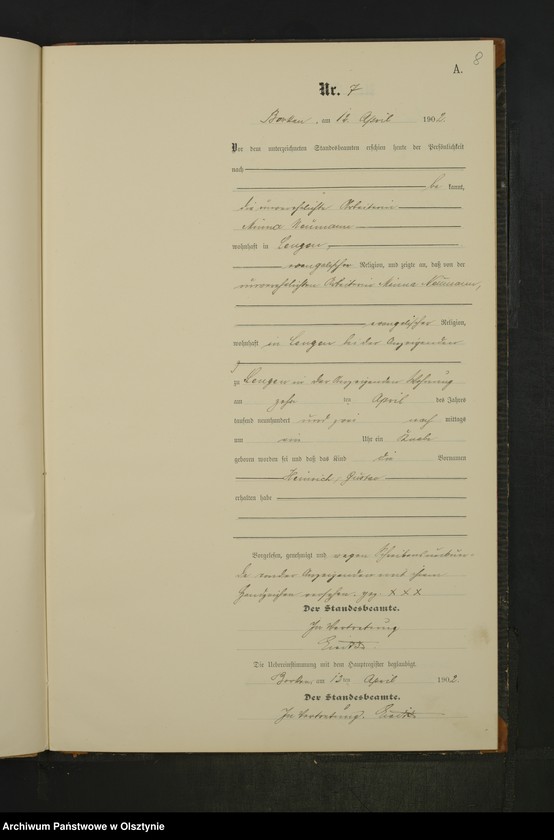 8
A.
Nr. 7
Borken, am 12. April 1902.
Vor dem unterzeichneten Standesbeamten erschien heute der Persönlichkeit
nach
be kannt,
die unverehelichte Arbeiterin
Minna Neumann
wohnhaft in Lengen,
evangelischer Religion, und zeigte an, daß von der
unverehelichten Arbeiterin Minna Neumann,
evangelischer Religion,
wohnhaft in Lengen bei der Anzeigenden
zu Lengen in der Anzeigenden Wohnung
am zehn ten April des Jahres
tausend neunhundert und zwei nach mittags
um ein Uhr ein Knabe
geboren worden sei und daß das Kind die Vornamen
Heinrich Gustav
erhalten habe
Vorgelesen, genehmigt und wegen Schreibensunkun-
de von der Anzeigenden mit ihrem
Handzeichen versehen. gez. X X X
Der Standesbeamte.
In Vertretung
Die Uebereinstimmung mit dem Hauptregister beglaubigt.
Borken, am 12ten April 1902
Der Standesbeamte.
In Vertretung.
Archiwum Państwowe w Olsztynie